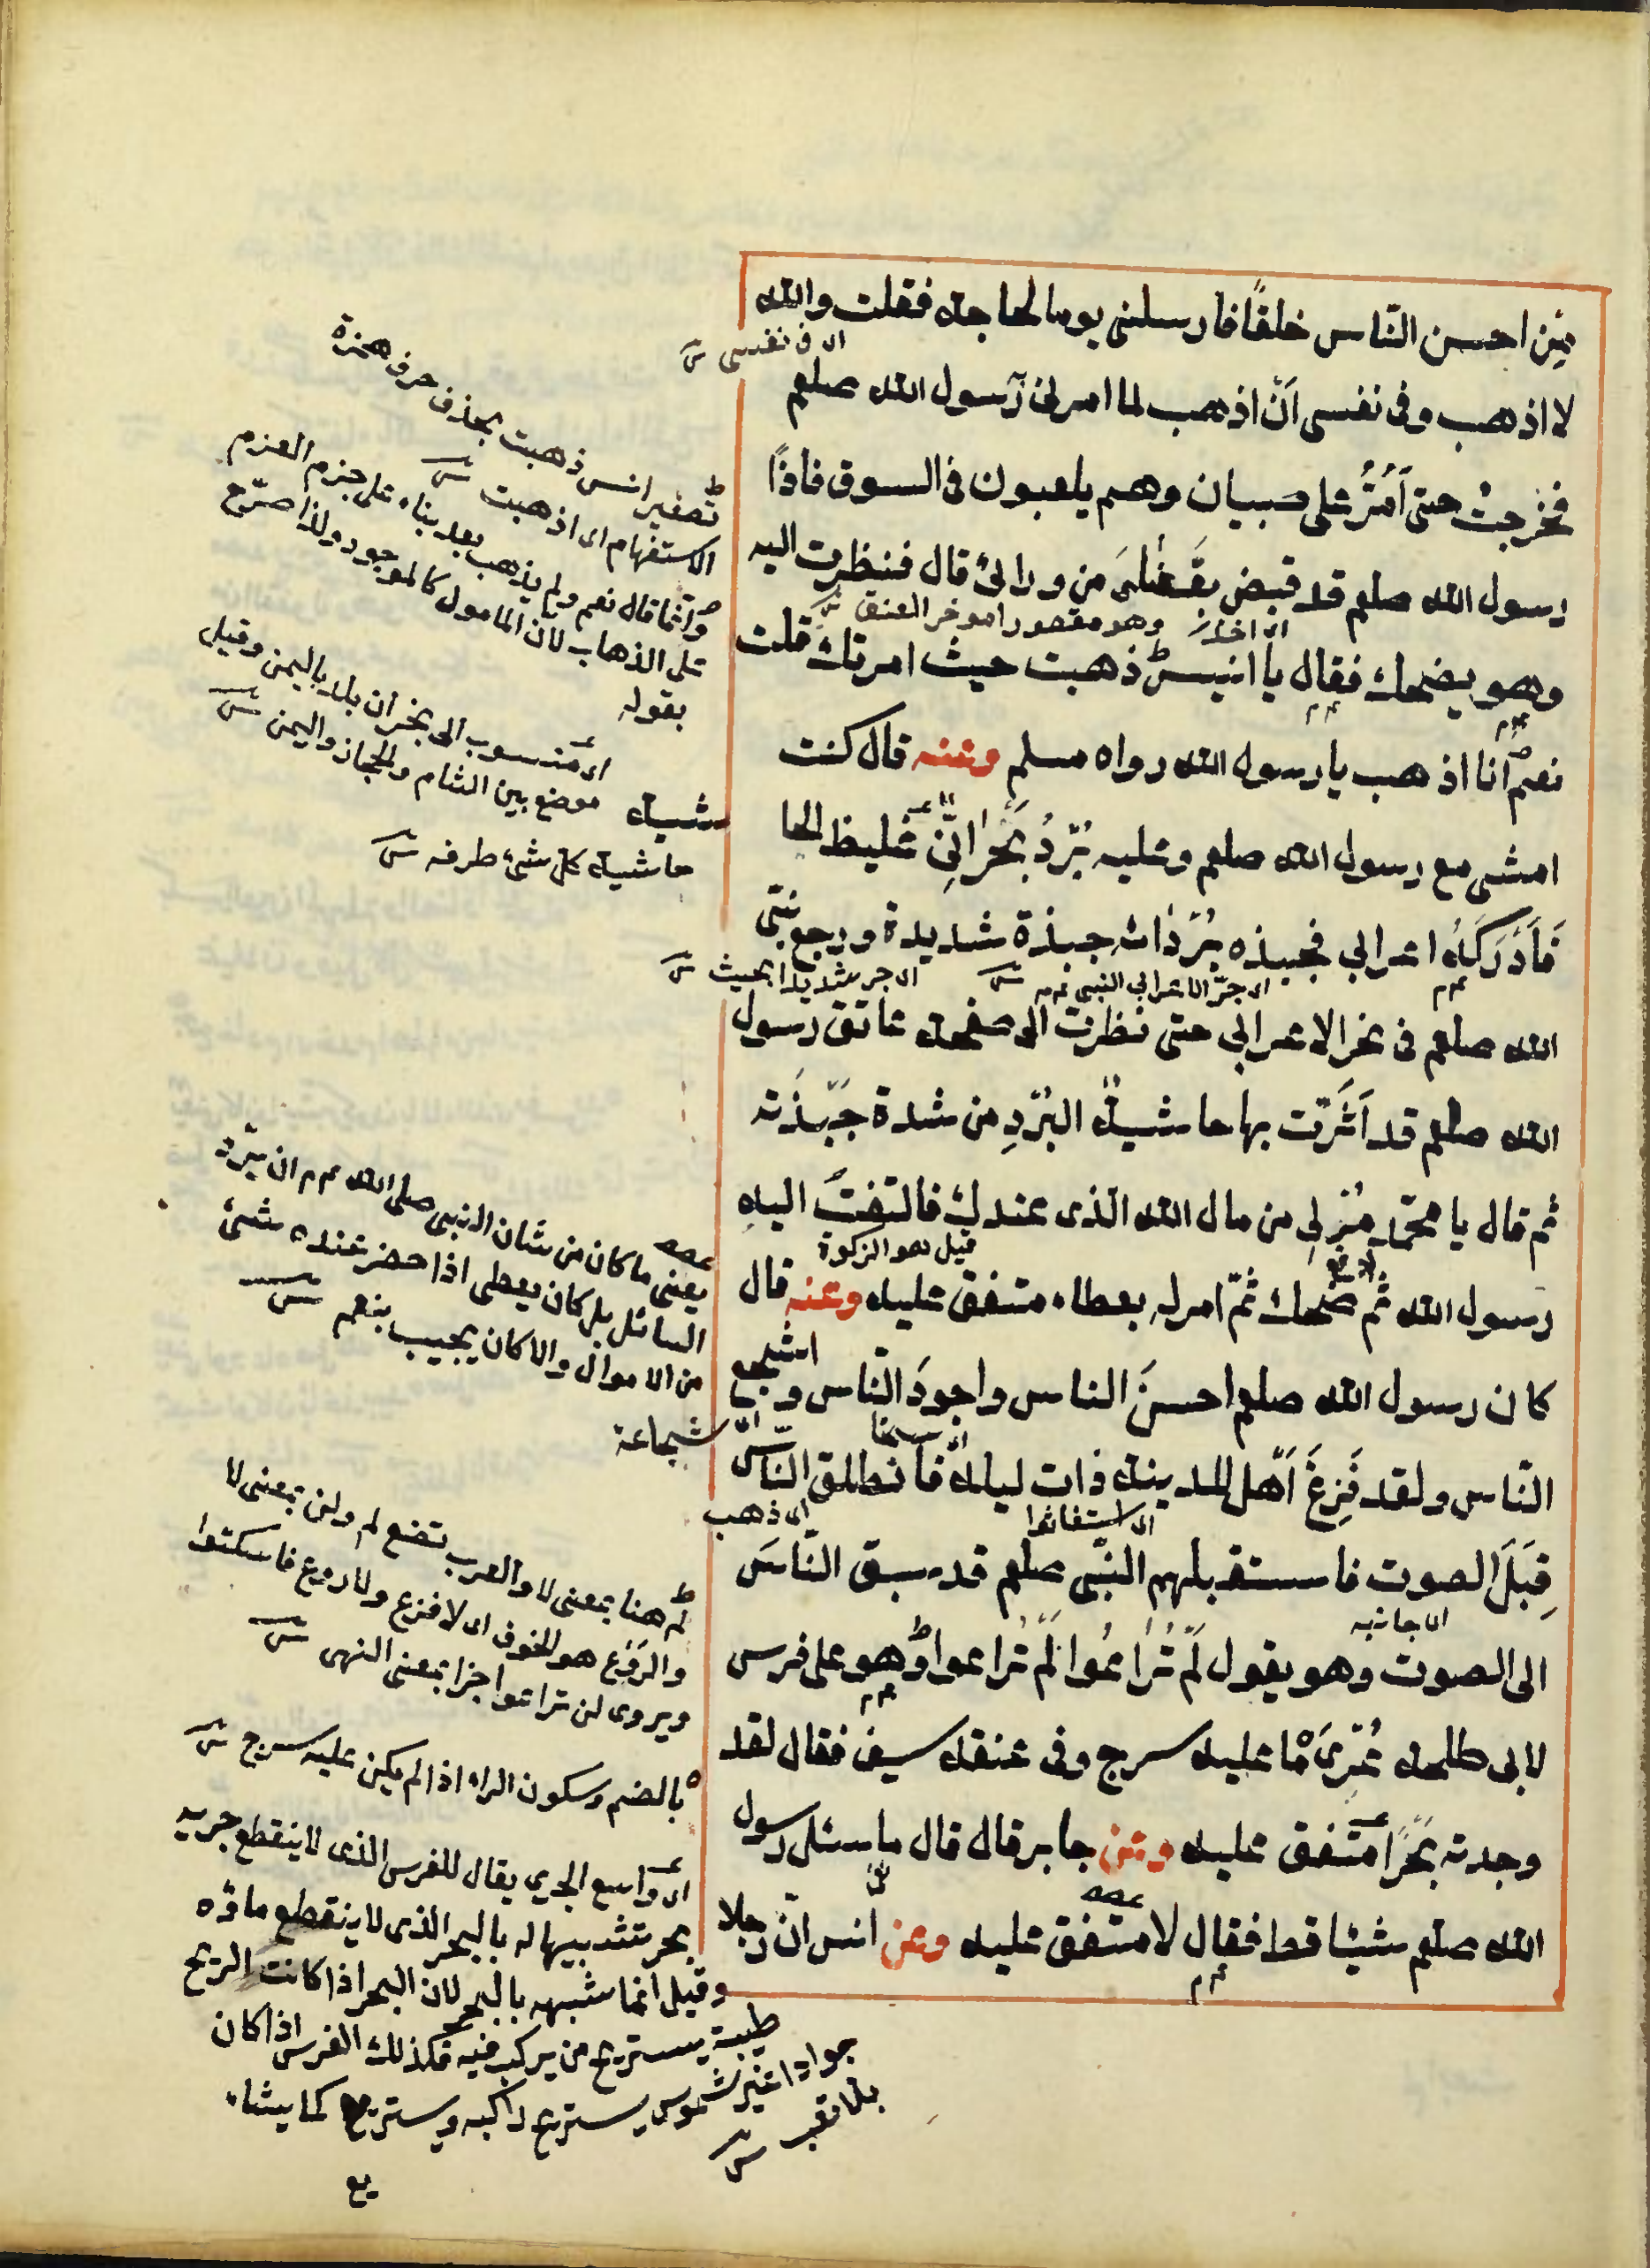 مِن احسن النّاس خلقًا فارسلنى يوما لحاجة فقلت والله
اى فى نفسى
لا اذهب وفى نفسى اَنْ اذهب لما امرنى رسول الله صلعم
فخرجتُ حتى اَمُرُّ على صبيان وهم يلعبون فى السوق فاذًا
رسول الله صلعم قد قبض بقفاىَ من ورائى قال فنظرت اليه
اى اخذ وهو مقصورا موخر العنق
وهو يضحك فقال يا انيس ذهبت حيث امرتك قلت
نعم انا اذهب يا رسول الله رواه مسلم وعنه قال كنت
امشى مع رسول الله صلعم وعليه بُرْدٌ نَجْرانِىٌّ غليظ الحا
شية
فَاَدْرَكَهُ اعرابي فجبذه بُرْدائه جبذة شديدة ورجع نبىّ
اى جرّ الاعرابي النبى عم اى جر شديدا بحيث
الله صلعم فى نحر الاعرابي حتى نظرت الى صفحة عاتق رسول
الله صلعم قد اَثَّرَت بها حاشيةُ البُرْدِ من شدة جَبْذَته
ثم قال يا محمّد مُرْ لِى من مال الله الّذى عندك فالتفتَ اليه
قيل هو الزكوة
رسول الله ثم ضحك ثمّ امر له بعطاء متفق عليه وعنه قال
كان رسول الله صلعم احسنَ الناس واجودَ النّاس و اشجع
اى سخا اى شجاعة
النّاس ولقد فَزِعَ اَهل المدينة ذات ليلة فانطلق النّاس
اى استغاثوا اى ذهب
قِبَلَ الصوت فاستقبلهم النّبى صلعم قد سبق النّاسَ
اى جانبه
الى الصوت وهو يقول لَمْ تُراعُوا لَمْ تُراعوا وهو على فرس
لابى طلحة عُرْىٍ ما عليه سرج وفى عنقه سيف فقال لقد
وجدته بَحْرًا متفق عليه وعن جابر قال قال ما سئل رسول
الله صلعم شيئا قط فقال لا متفق عليه وعن انس انّ رجلا
تصغير انس ذهبت بحذف حرف همزة
الاستفهام اى اذهبت
وانّما قال نعم ولم يذهب بعد بناء على جزم العزم
على الذهاب لان المامول كالموجود ولذا صرّح
بقوله
اى منسوب الى نجران بلد باليمن وقيل
موضع بين الشام والحجاز واليمن
حاشية كل شئ طرفه
يعنى ما كان من شان النبى صلى الله عم ان يرّد
السائل بل كان يعطى اذا حضر عنده شئ
من الاموال والا كان يجيب بنعم
لم هنا بمعنى لا والعرب تضع لم ولن بمعنى لا
والروع هو الخوف اى لا فزع ولا روع فاسكتوا
ويروى لن تراعوا جزا بمعنى النهى
بالضم وسكون الراء اذا لم يكن عليه سرج
اى واسع الجري يقال للفرس الذى لا ينقطع جريه
بحر تشبيها له بالبحر الذى لا ينقطع ماؤه
وقيل انما شبهه بالبحر لان البحر اذا كانت الريح
طيبة يستريح من يركب فيه فكذلك الفرس اذا كان
جوادا غير شموس يستريح راكبه ويستريح كما يشاء
بلا تعب
يع